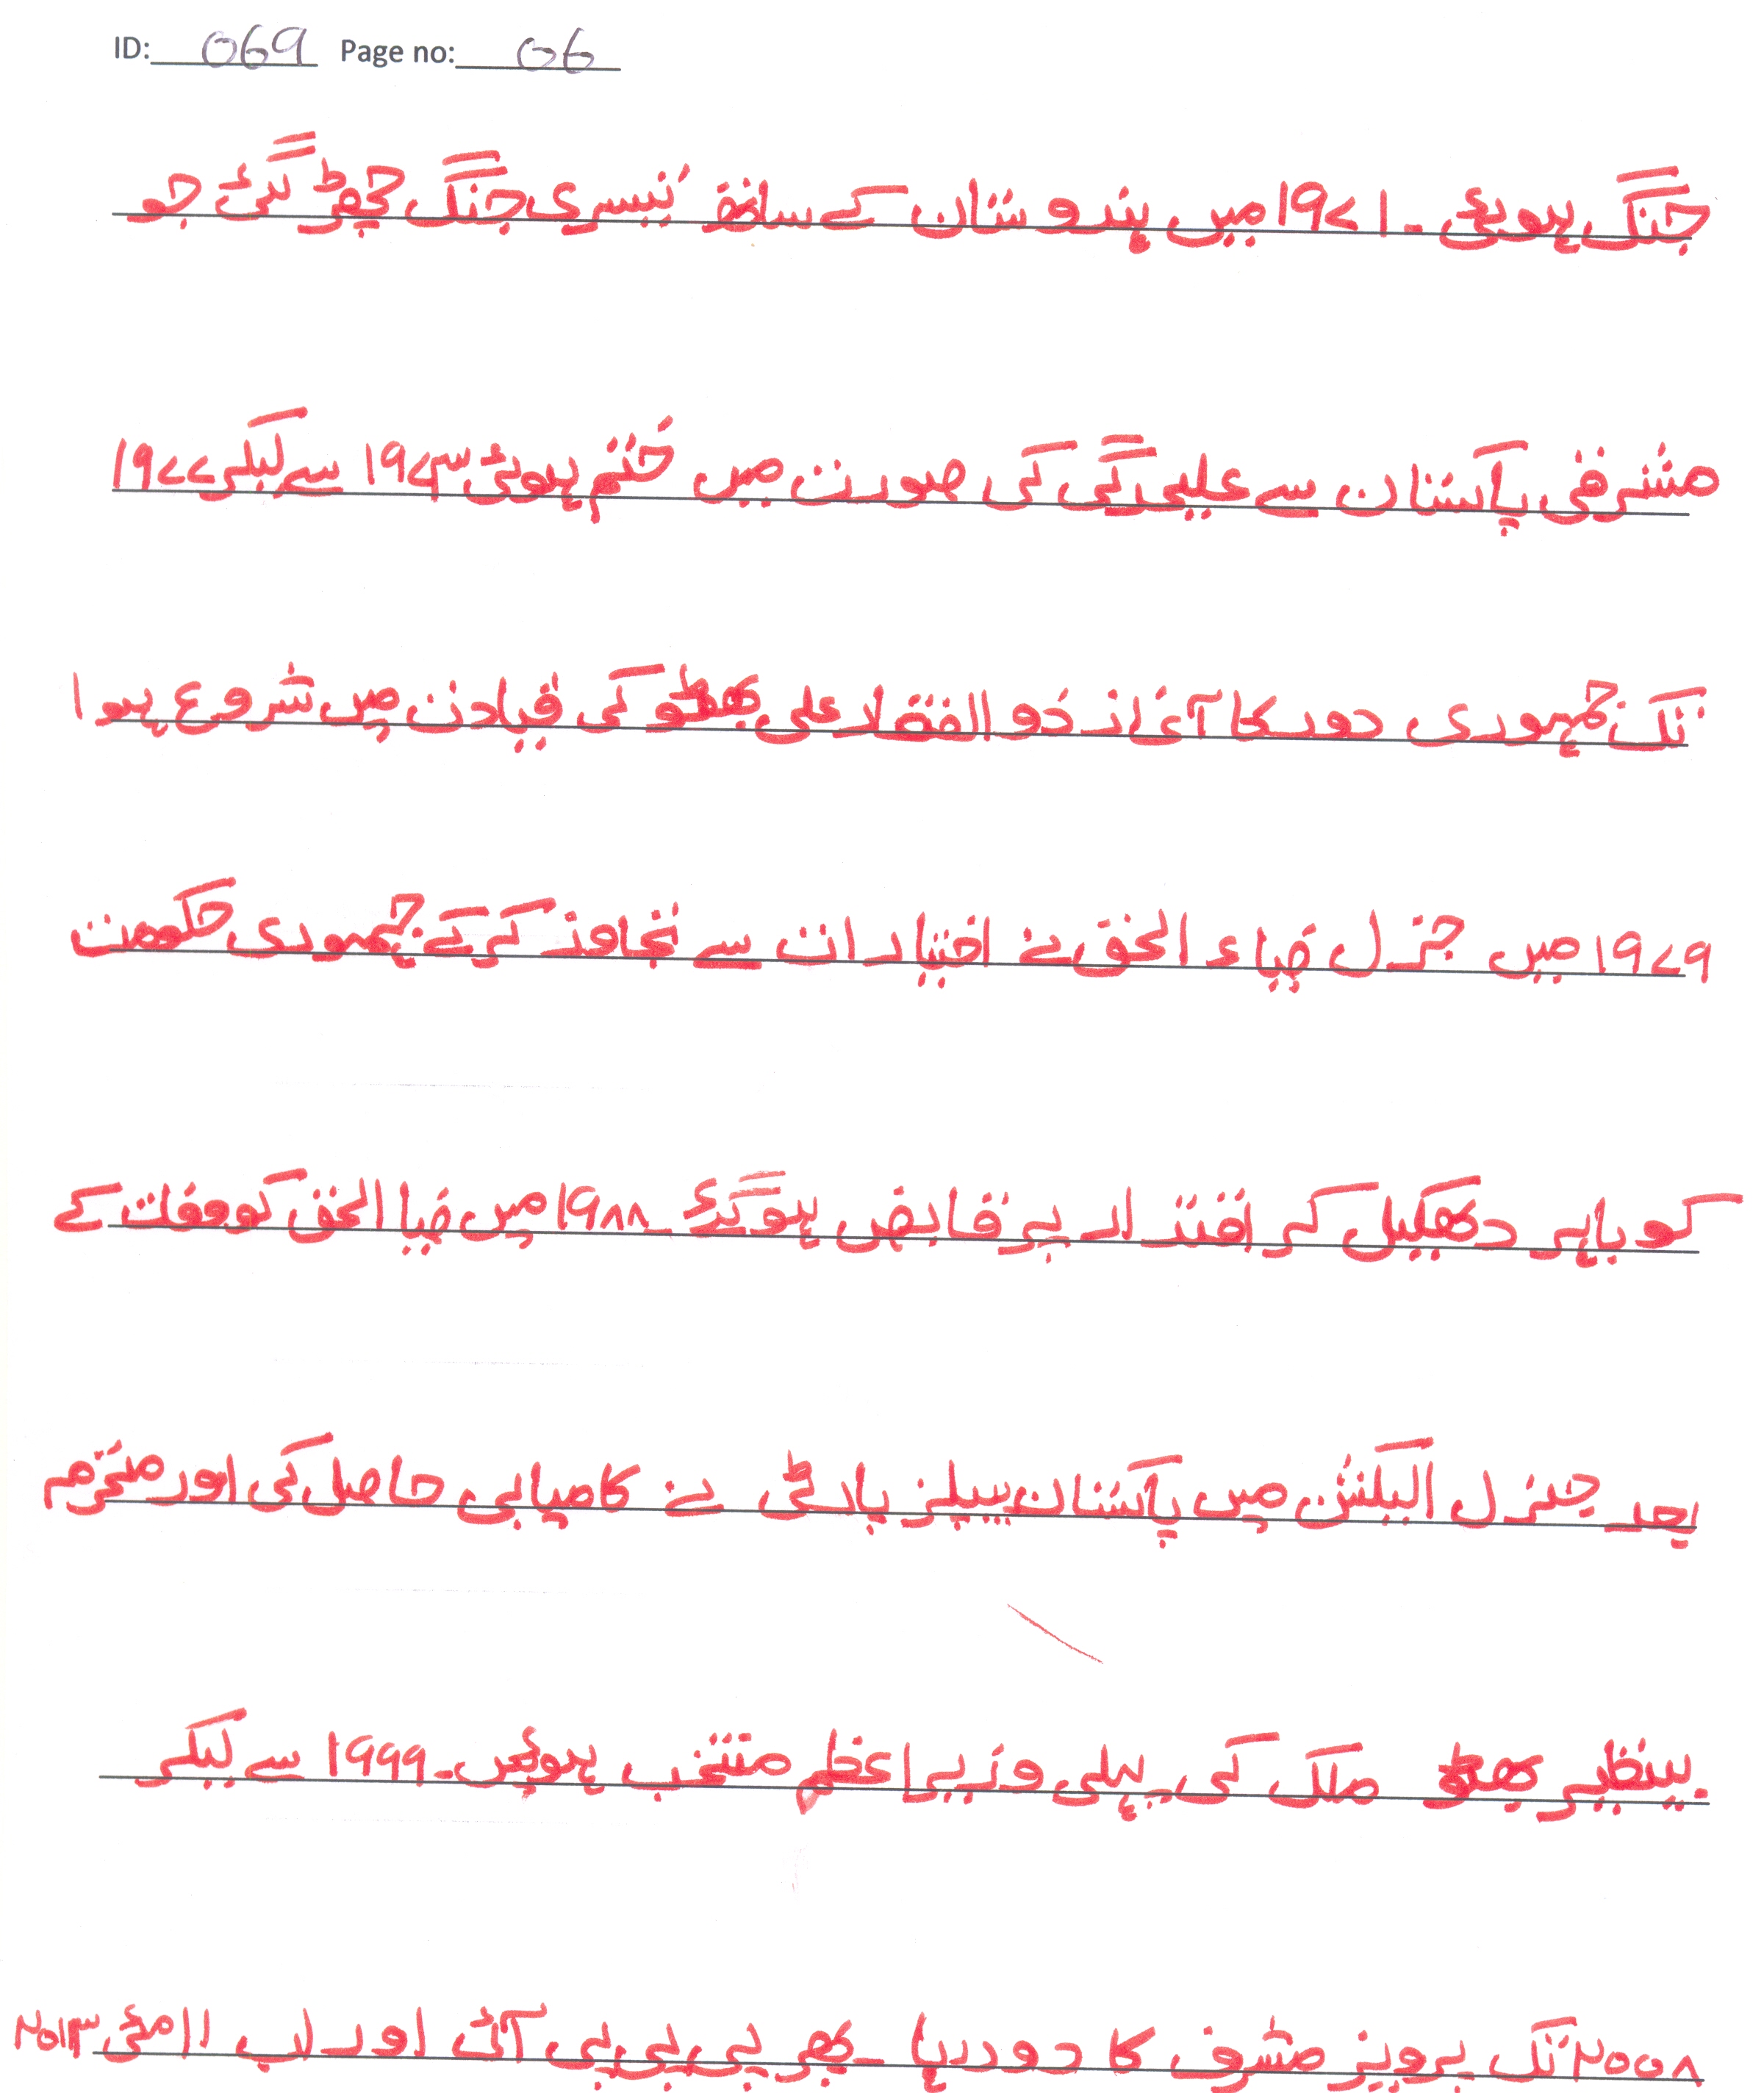 ID: 069 Page no: 06
جنگ ہوئی۔ ۱۹۷۱ میں ہندوستان کے ساتھ تیسری جنگ چھڑ گئی جو
مشرقی پاکستان سے علیحدگی کی صورت میں ختم ہوئی ۱۹۷۳ سے لیکر ۱۹۷۷
تک جمہوری دور کا آغاز ذوالفقار علی بھٹو کی قیادت میں شروع ہوا
۱۹۷۹ میں جنرل ضیاء الحق نے اختیارات سے تجاوز کرکے جمہوری حکومت
کو باہر دھکیل کر اقتدار پر قابض ہوگئے ۱۹۸۸ میں ضیا الحق کو وفات کے
بعد جنرل الیکشن میں پاکستان پیپلز پارٹی نے کامیابی حاصل کی اور محترم
بینظیر بھٹو ملک کی پہلی وزیراعظم منتخب ہوئیں۔ ۱۹۹۹ سے لیکر
۲۰۰۸ تک پرویز مشرف کا دور رہا ۔ پھر پی پی پی آئی اور اب ۱۱ مئی ۲۰۱۳